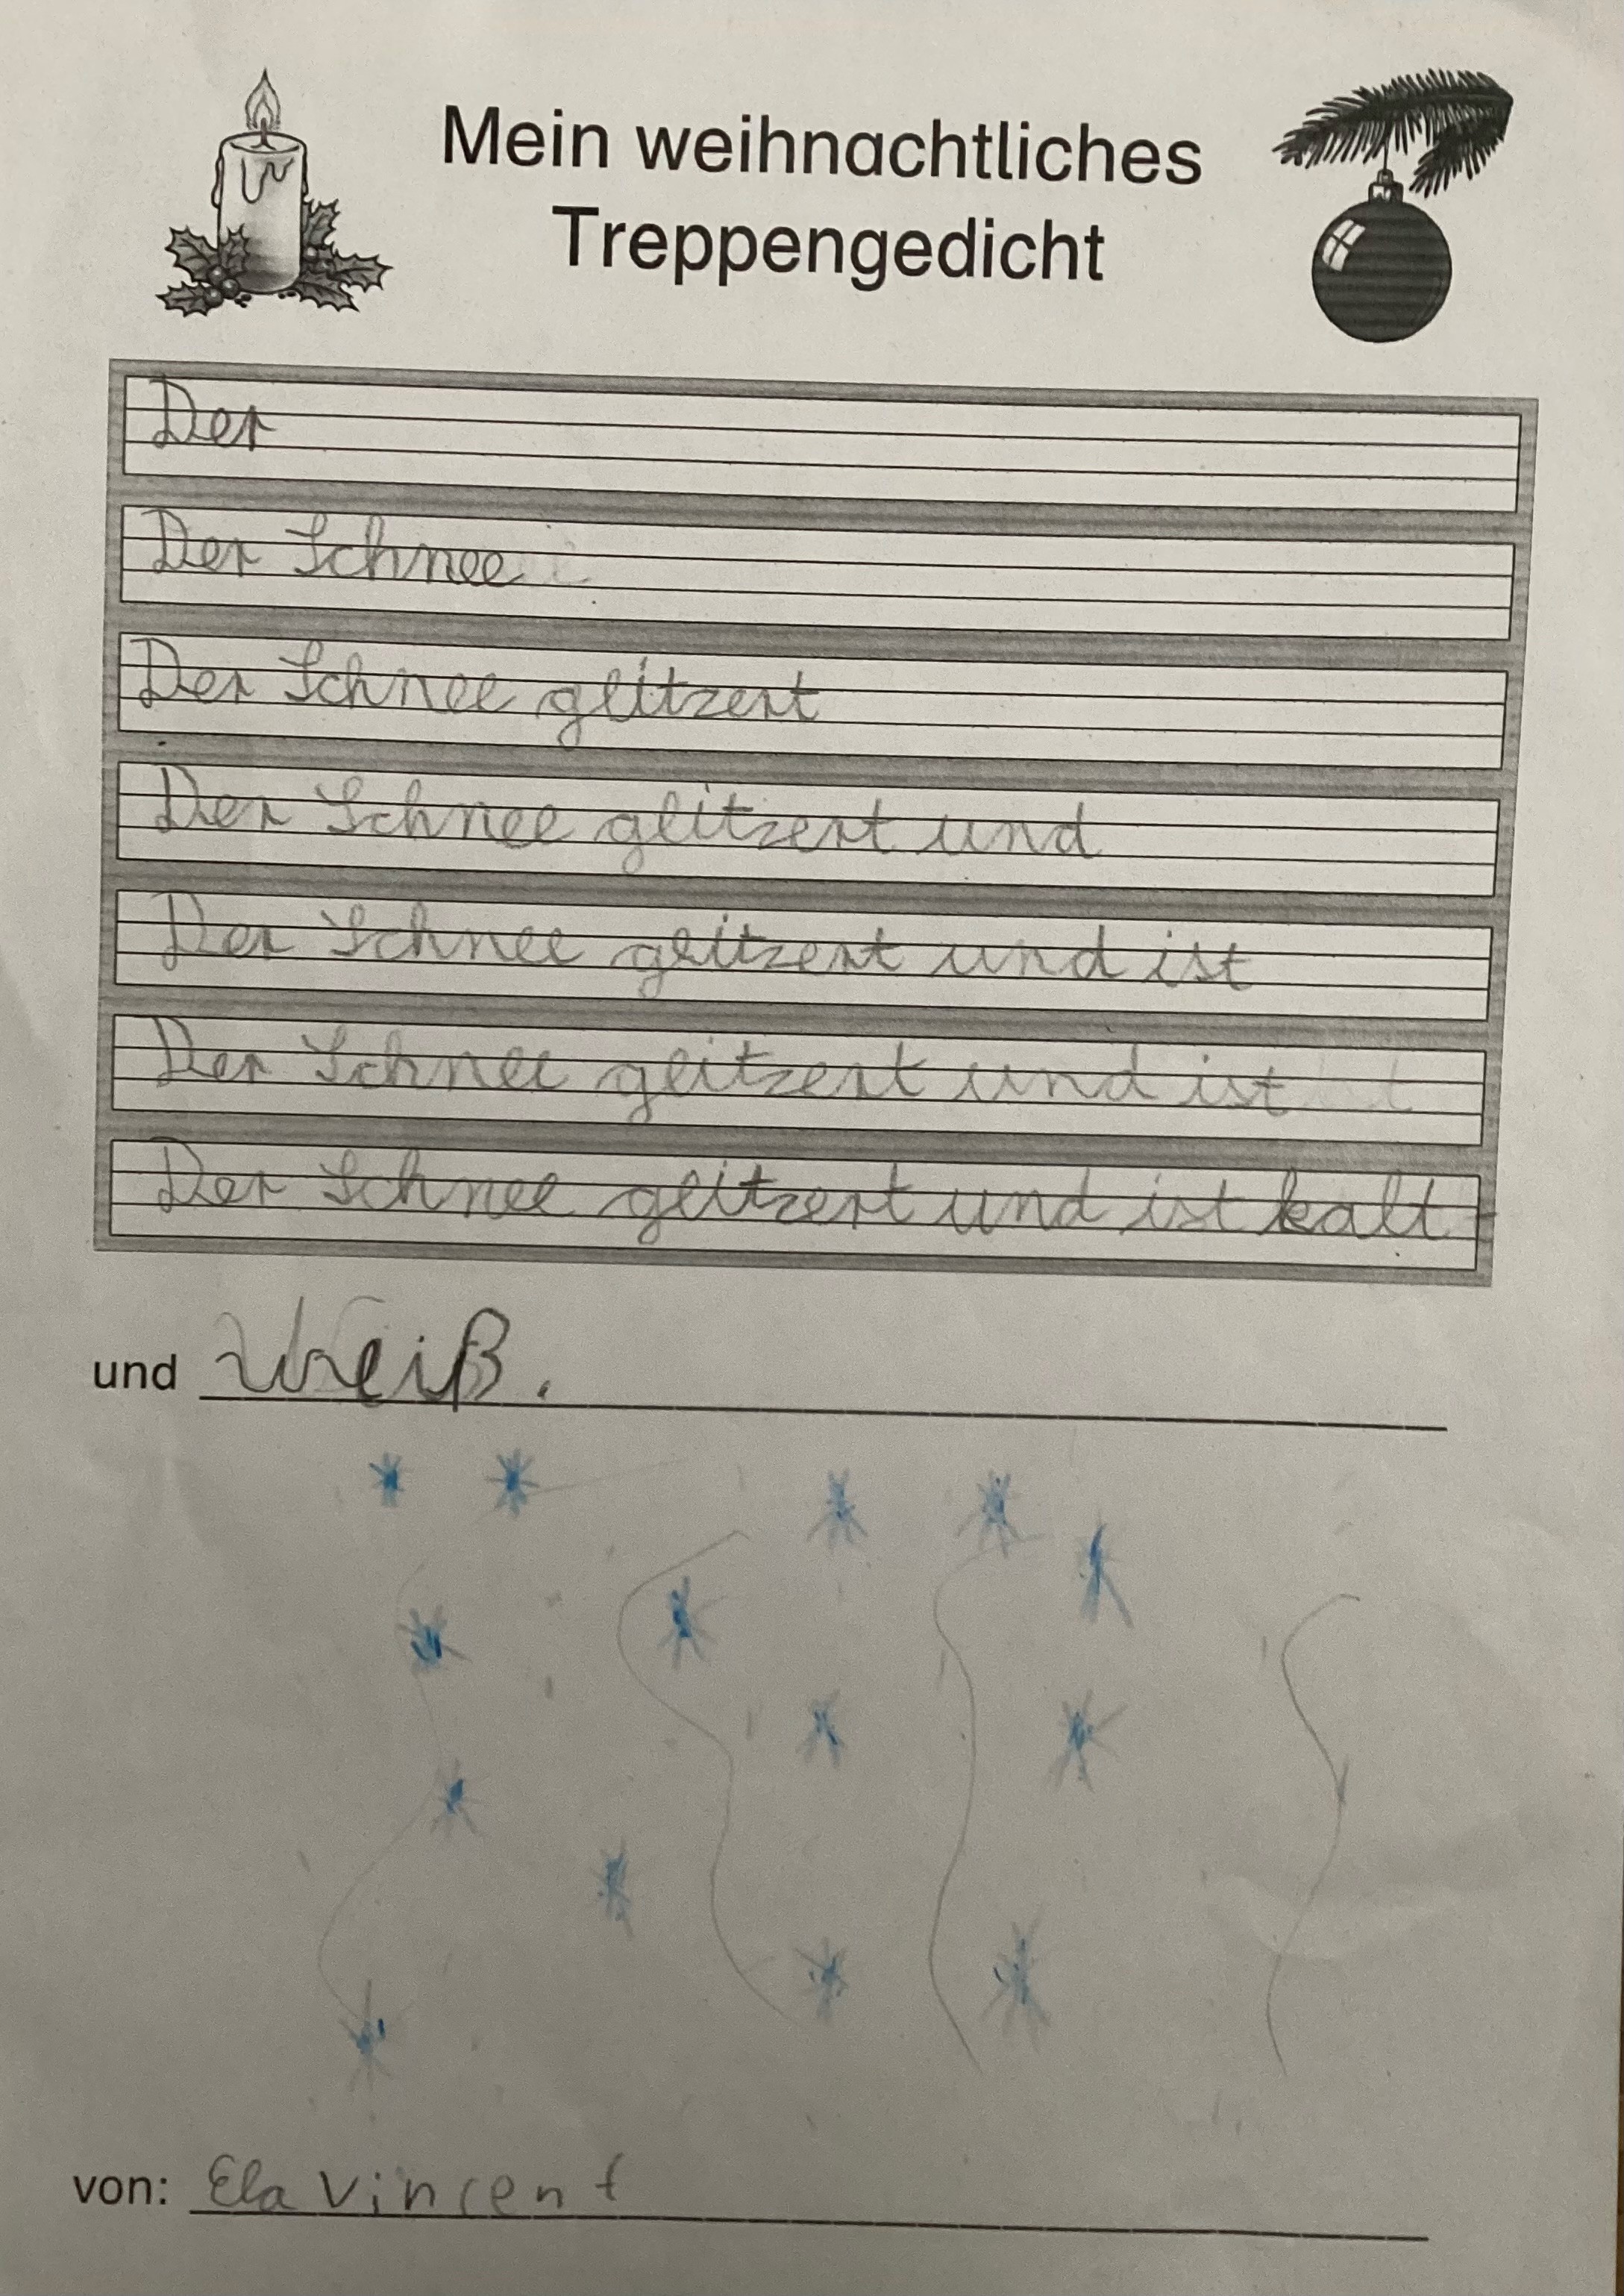 Mein weihnachtliches
Treppengedicht
Der
Der Schnee
Der Schnee glitzert
Der Schnee glitzert und
Der Schnee glitzert und ist
Der Schnee glitzert und ist
Der Schnee glitzert und ist kalt
und Weiß.
von: Ela Vincent